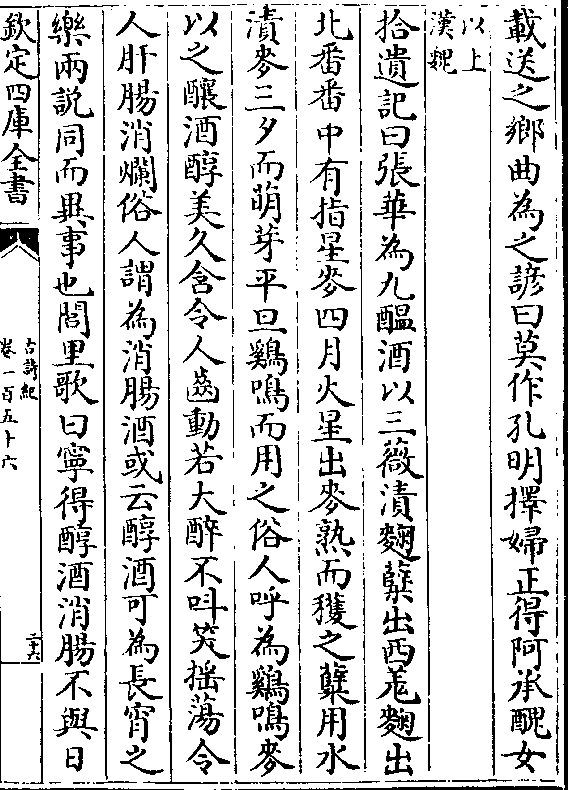 載送之鄉曲為之諺曰莫作孔明擇婦正得阿承醜女
以上
漢魏
拾遺記曰張華為九醖酒以三薇漬麴糵出西羌麴出
北番番中有指星麥四月火星出麥熟而獲之糵用水
漬麥三夕而萌芽平旦鷄鳴而用之俗人呼為鷄鳴麥
以之釀酒醇美久含令人齒動若大醉不叫笑揺蕩令
人肝腸消爛俗人謂為消腸酒或云醇酒可為長宵之
樂兩説同而異事也閭里歌曰寧得醇酒消腸不與日
欽定四庫全書
古詩紀
卷一百五十六
二十六